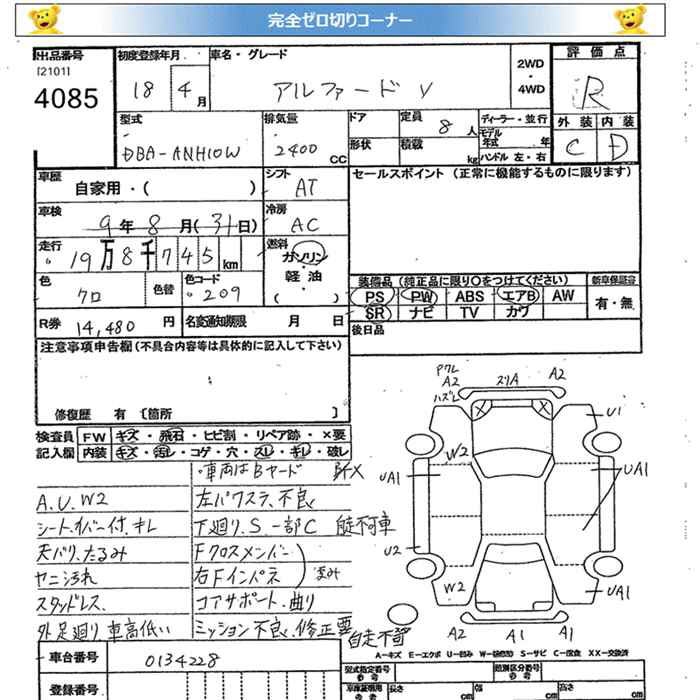 完全ゼロ切りコーナー
出品番号 初度登録年月 車名・グレード 2WD・4WD 評価点
[2101]
4085 18 4月 アルファード V R
型式 排気量 ドア 定員 8人 ディーラー・並行 外装 内装
DBA-ANH10W 2400CC 形状 積載 kg モデル年式 年 ハンドル 左・右 C D
車歴 シフト セールスポイント (正常に機能するものに限ります)
自家用・( ) AT
車検 冷房
9年8月(31日) AC
走行 燃料
19万8千745km ガソリン・軽油 ( )
色 色替 色コード 装備品 (純正品に限り○をつけてください) 新車保証書
クロ 209 PS PW ABS エアB AW 有・無
SR ナビ TV カワ
R券 14,480円 名変通知期限 月 日 後日品
注意事項申告欄 (不具合内容等は具体的に記入して下さい)
修復歴 有 [箇所 ]
検査員 FW キズ・飛石・ヒビ割・リペア跡・×要
記入欄 内装 キズ・汚レ・コゲ・穴・スレ・キレ・破レ
・車両はBヤード
A.U.W2 左パワステ.不良
シートカバー付.キレ 下廻り.S.一部C 自走不可車
天バリ.たるみ Fクロスメンバー
ヤニ汚れ 右Fインパネ 歪み
スタッドレス コアサポート.曲り
外足廻り 車高低い ミッション不良.修正要 自走不可
A2 スリA A2
U1
W2
UA1 UA1
U2
W2 UA1
A2 A1 A1
A-キズ E-エクボ U-凹み W-補修跡 S-サビ C-腐食 XX-交換済
車台番号 0134228 型式指定番号 類別区分番号
登録番号 長さ cm 幅 cm 高さ cm